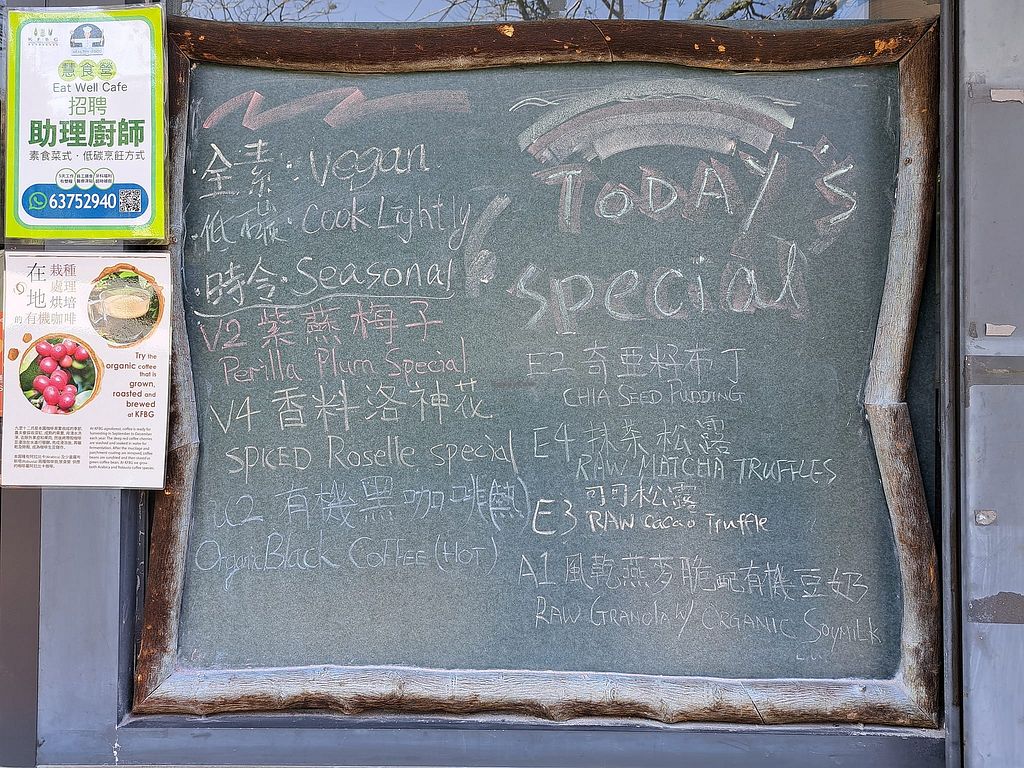 慧食營
Eat Well Cafe
招聘
助理廚師
素食菜式·低碳烹飪方式
63752940
在地的
栽種
處理
烘培
有機咖啡
Try the
organic coffee
that is
grown,
roasted and
brewed
at KFBG
全素: vegan
低碳: Cook Lightly
時令: Seasonal
V2 紫蘇梅子
Perilla Plum Special
V4 香料洛神花
SPICED Roselle special
有機黑咖啡(熱)
Organic Black COFFEE (HOT)
TODAY'S
special
E2 奇亞籽布丁
CHIA SEED PUDDING
抹茶松露
RAW MATCHA TRUFFLES
E3 可可松露
RAW cacao Truffle
A1 風乾燕麥脆配有機豆奶
RAW GRANOLA W/ ORGANIC SOYMILK